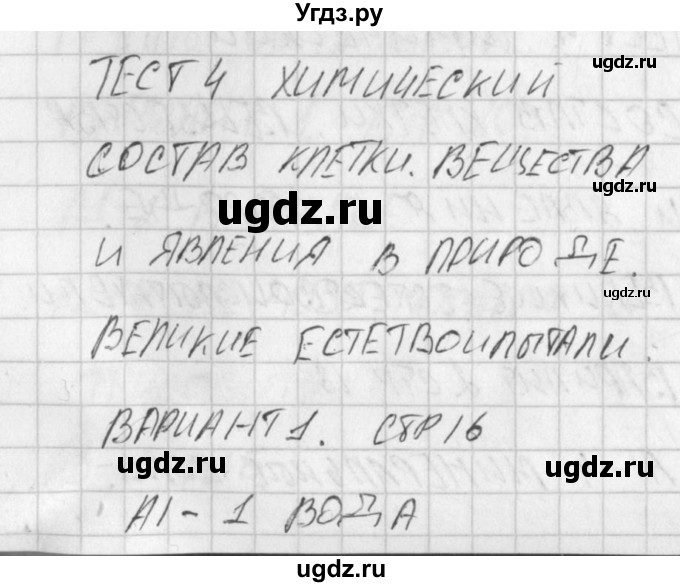 Угдз.ру
ugdz.ru
ТЕСТ 4 ХИМИЧЕСКИЙ
СОСТАВ КЛЕТКИ. ВЕЩЕСТВА
ugdz.ru
ugdz.ru
И ЯВЛЕНИЯ В ПРИРОДЕ.
ВЕЛИКИЕ ЕСТЕТВОИПЫТАЛИ.
ВАРИАНТ 1. СТР 16
ugdz.ru
ugdz.ru
А1 - 1 ВОДА
ugdz.ru